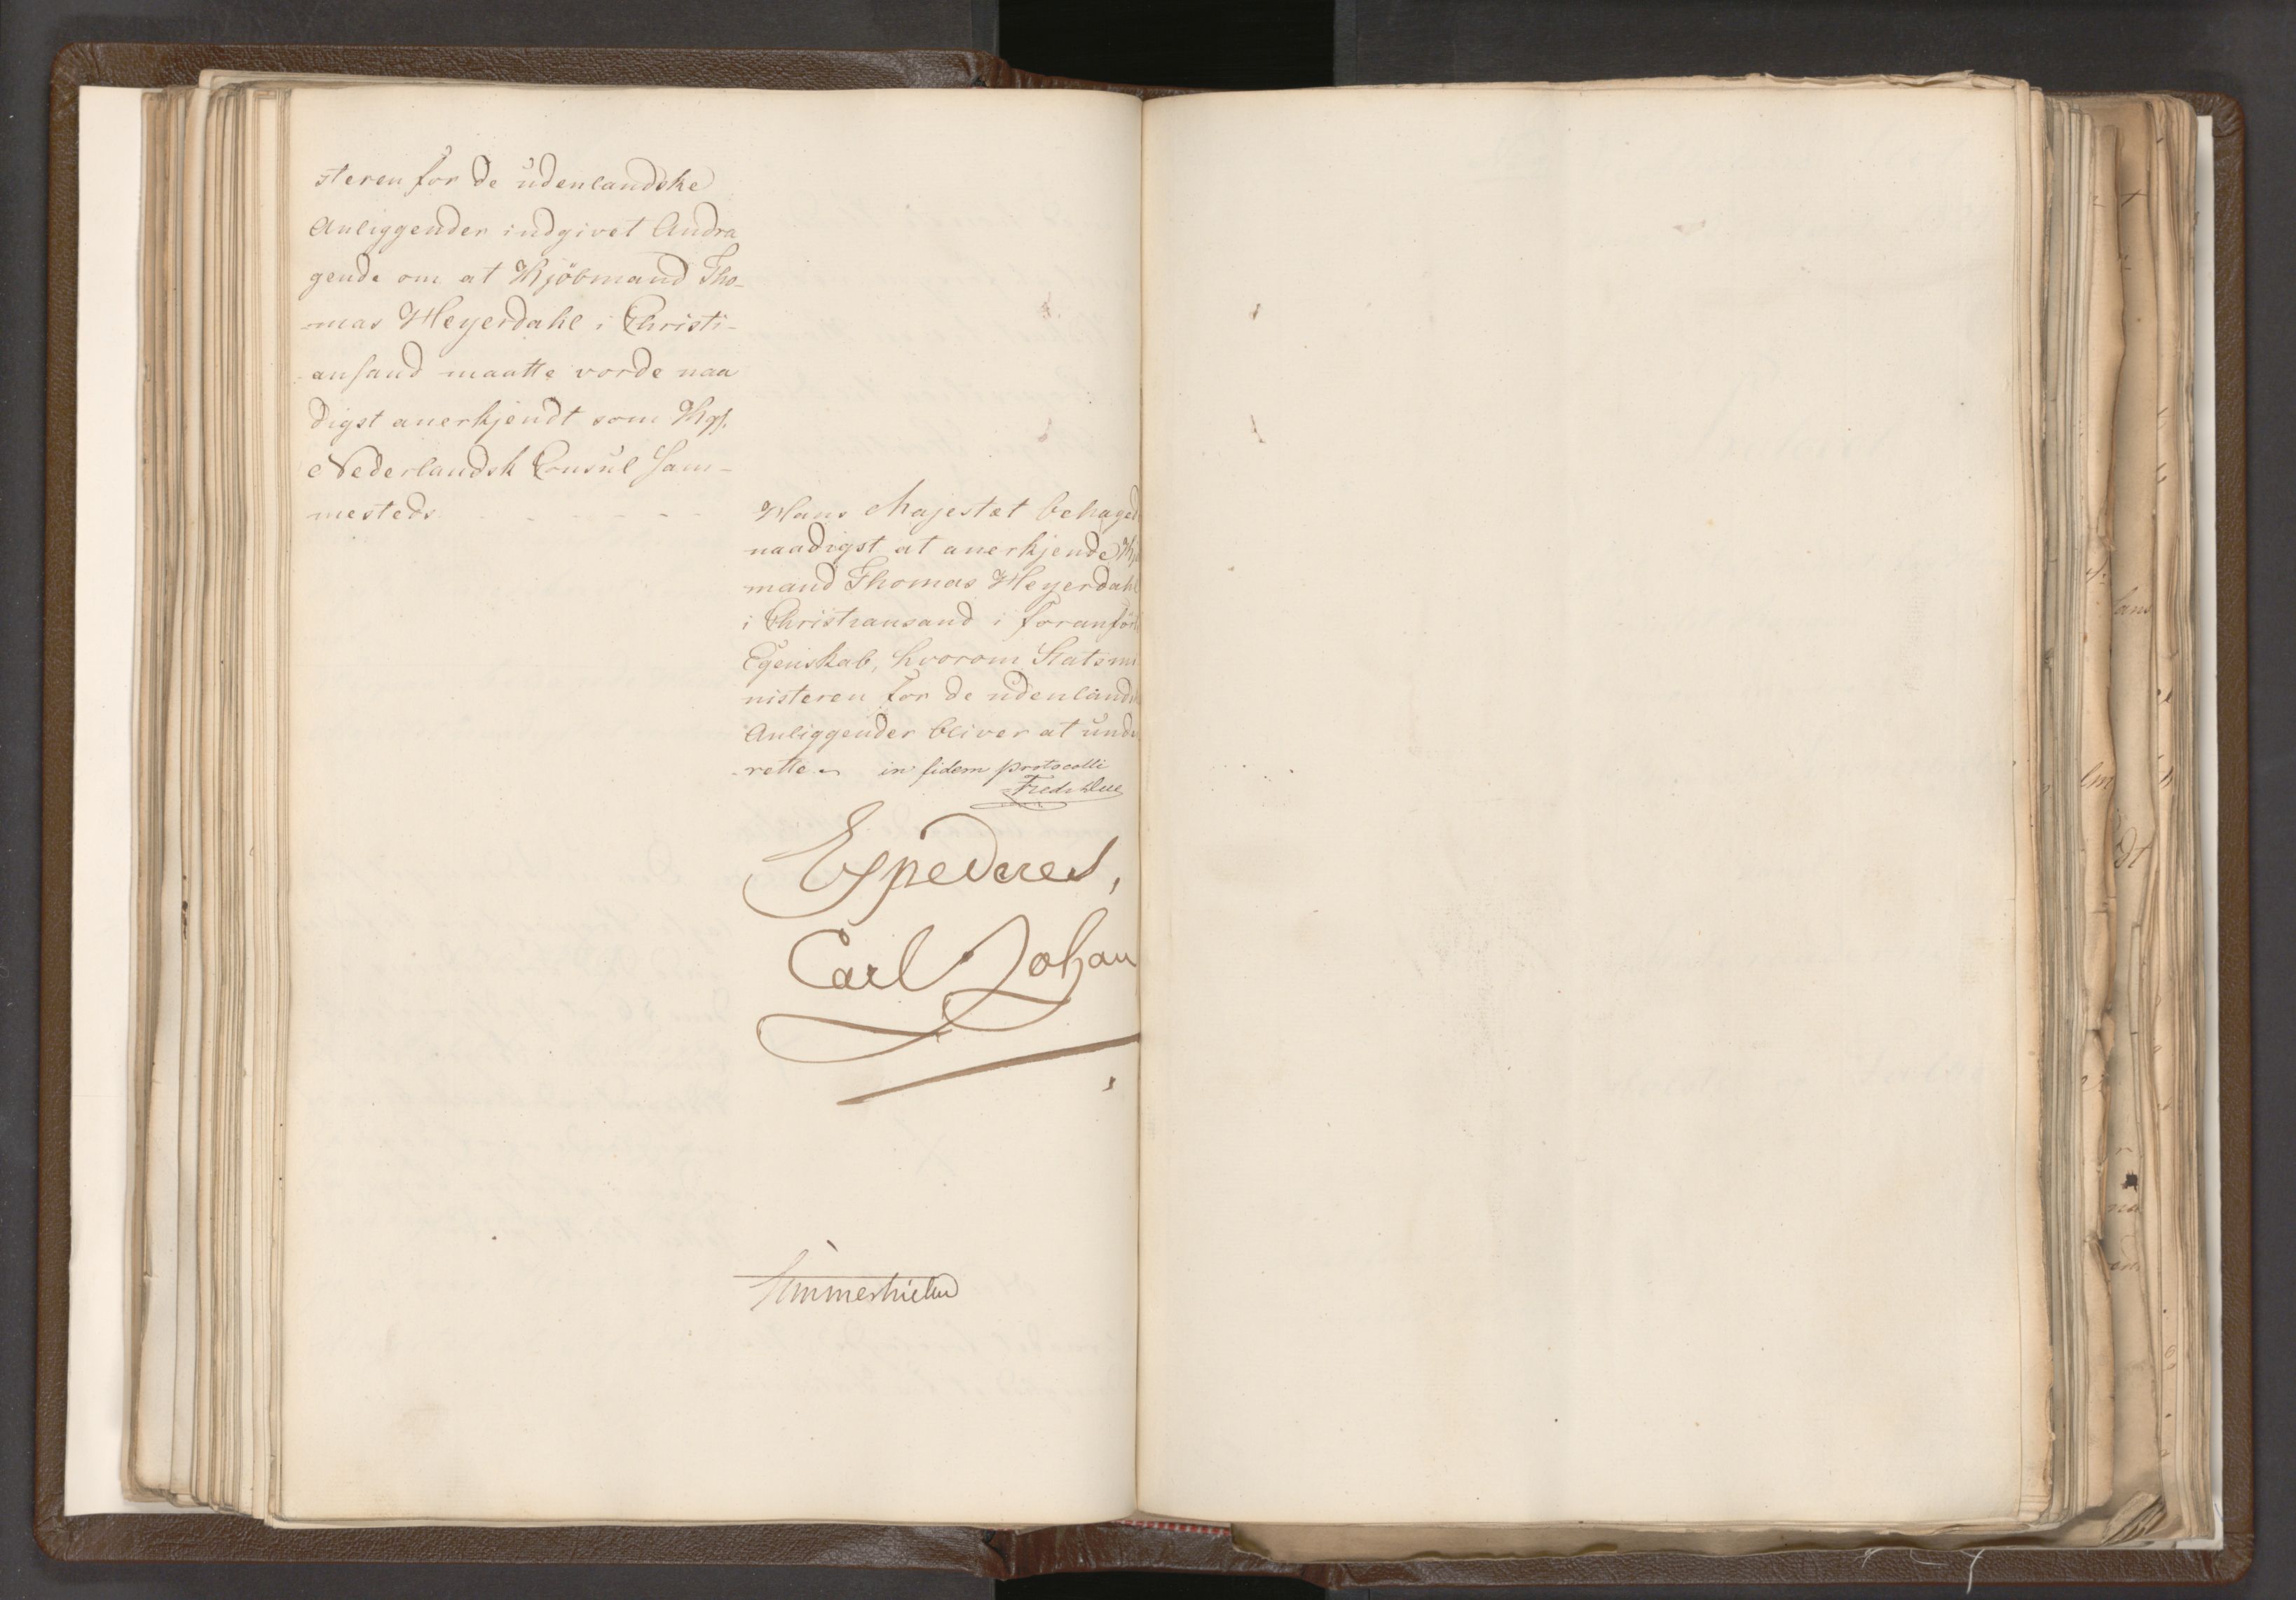 steren for de udenlandske
Anliggender indgivet Andra
gende om at Kjöbmand Tho-
mas Heyerdahl i Christi-
ansand maatte vorde naa
digst anerkjendt som Kgl.
Nederlandsk Consul sam-
mesteds - - - - - -
Hans Majestæt behaged
naadigst at anerkjende Kjö
mand Thomas Heyerdahl
i Christiansand i foranför
Egenskab, hvorom Statsmi
nisteren for de udenland
Anliggender bliver at unde
rette. in fidem protocolli
Fredr Due
Expederes,
Carl Johan